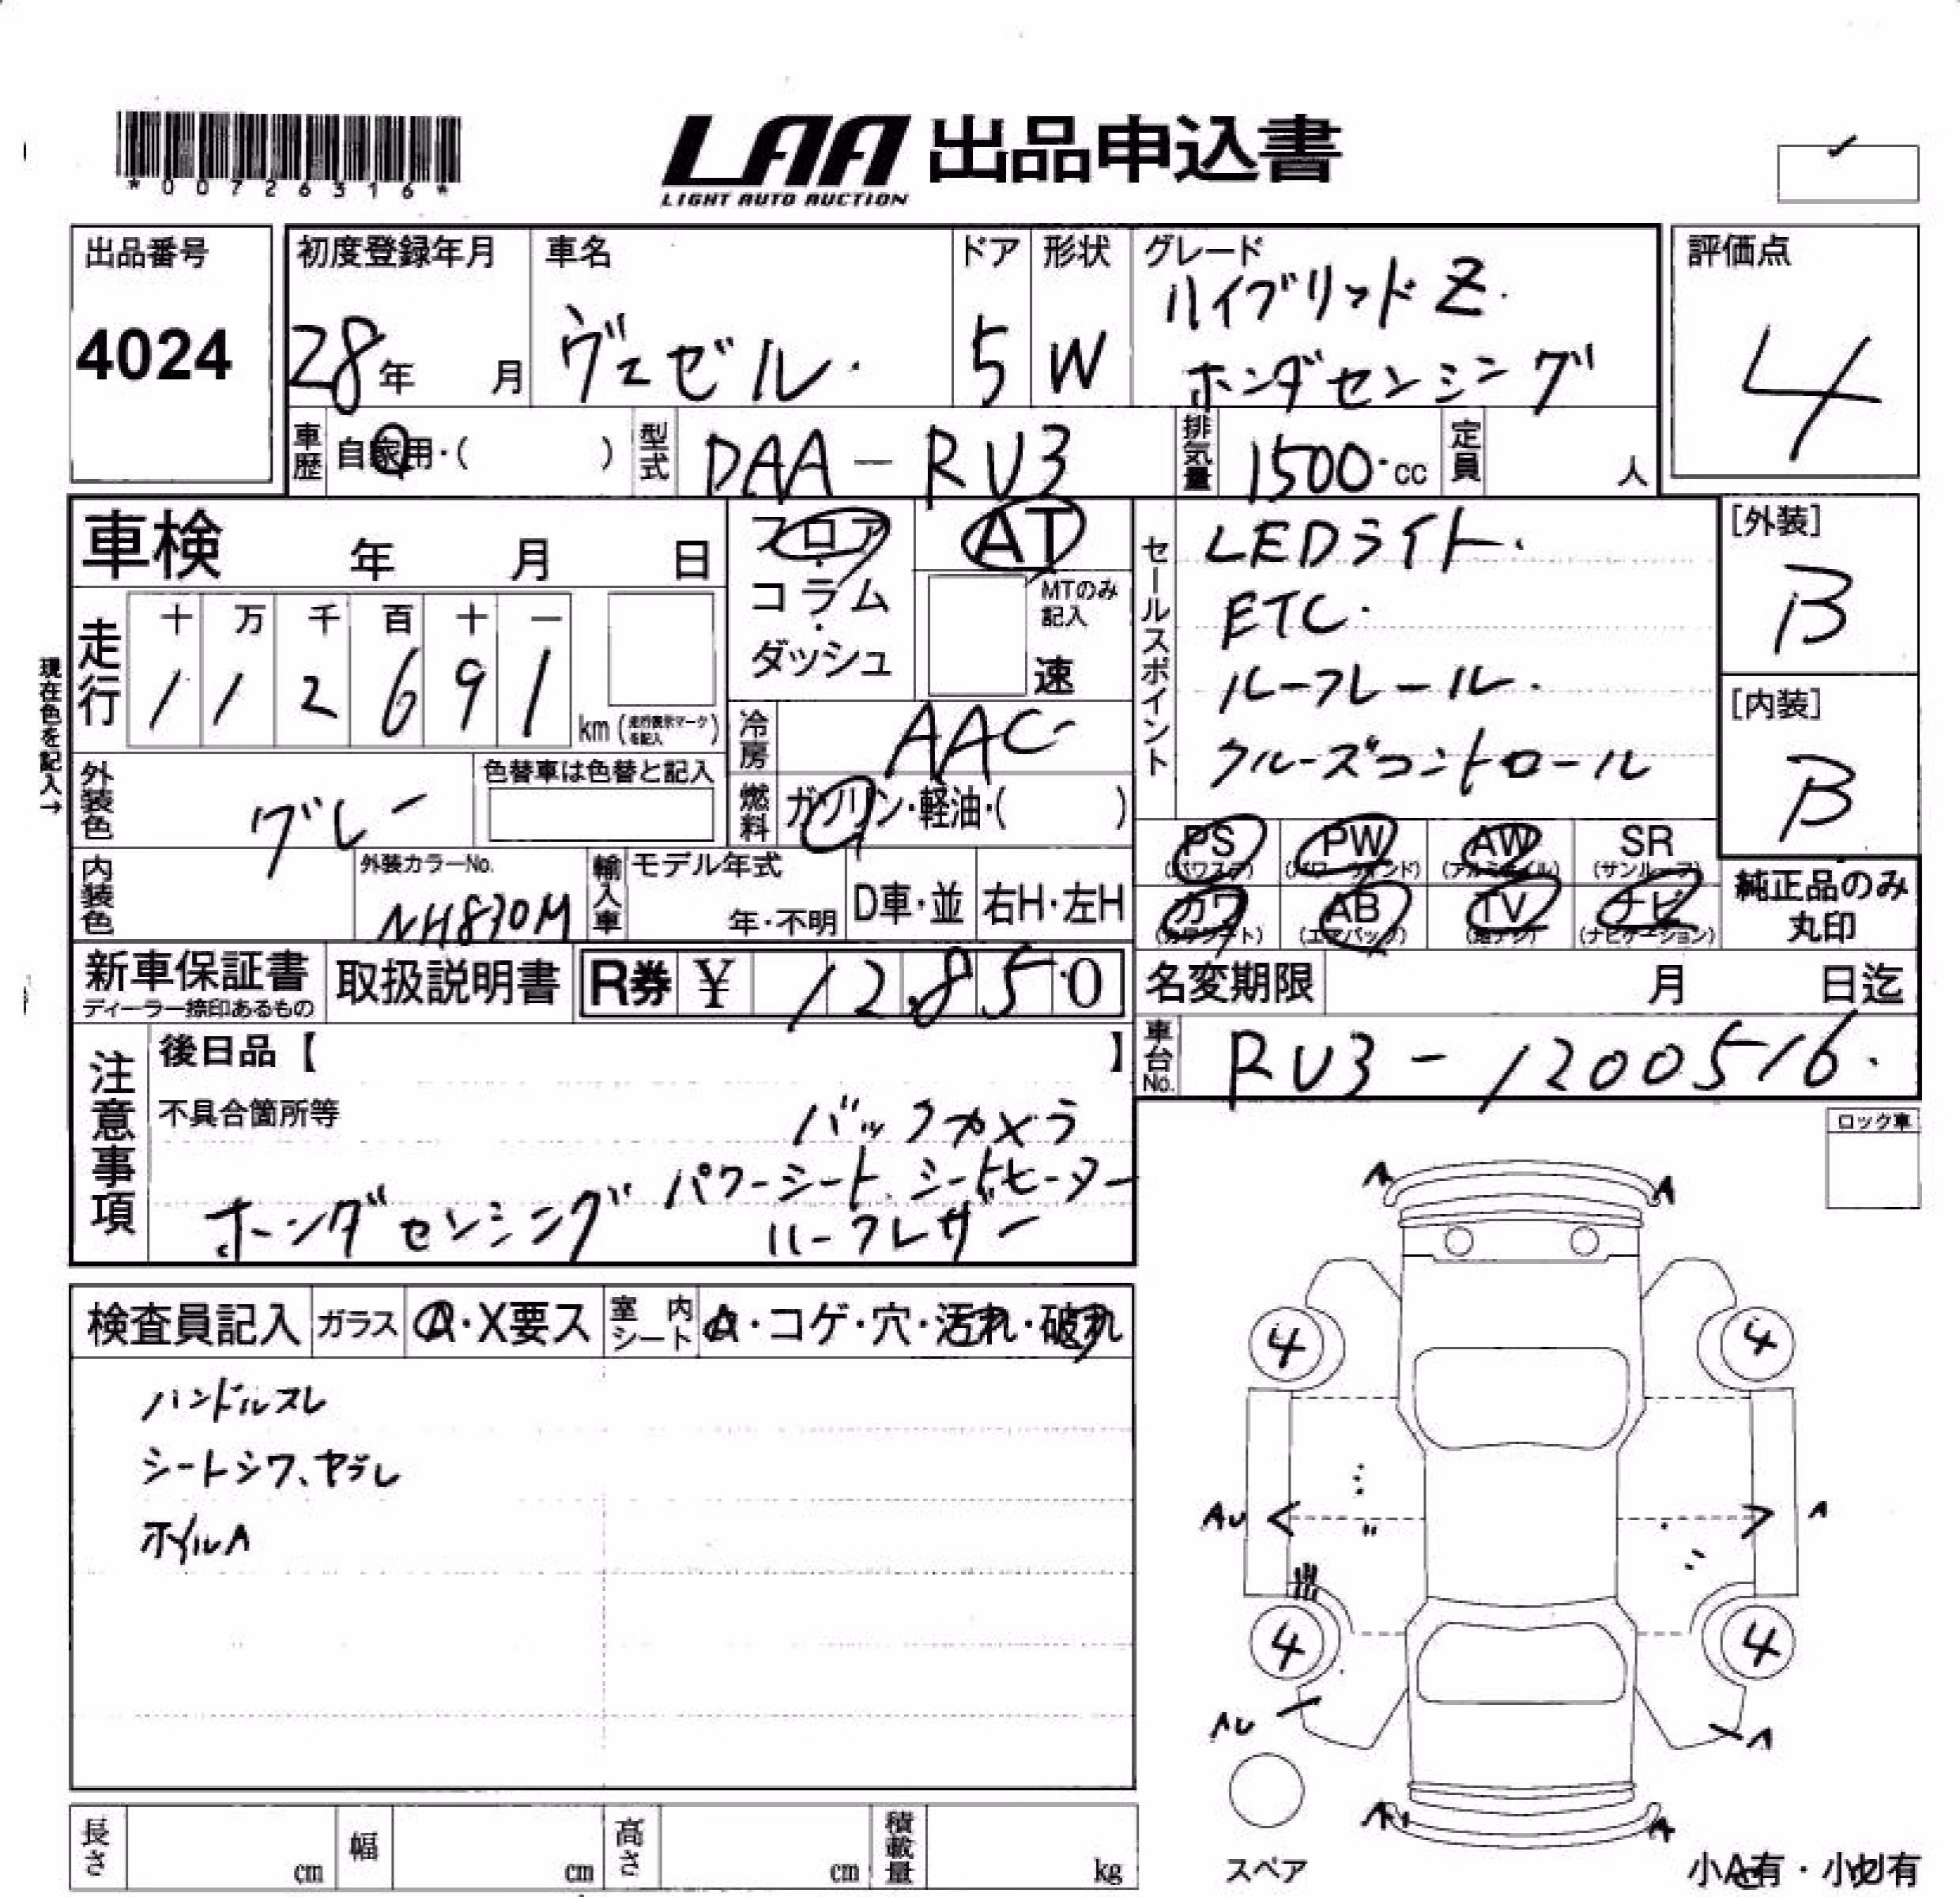 *00726316*
LAA 出品申込書
LIGHT AUTO AUCTION
出品番号
4024
初度登録年月
28年 月
車名
ヴェゼル
ドア
5
形状
W
グレード
ハイブリッドZ
ホンダセンシング
評価点
4
車歴
自家用・( )
型式
DAA-RU3
排気量
1500cc
定員
人
車検 年 月 日
フロア・コラム・ダッシュ
AT
MTのみ記入
速
現在色を記入→
走行
十 万 千 百 十 一
1 1 2 6 9 1
km
冷房
AAC
外装色
グレー
色替車は色替と記入
燃料
ガソリン・軽油・( )
内装色
外装カラーNo.
NH830M
輸入車
モデル年式
年・不明
D車・並
右H・左H
セールスポイント
LEDライト
ETC
ルーフレール
クルーズコントロール
[外装]
B
[内装]
B
PS PW AW SR
(パワステ) (パワーウインド) (アルミホイル) (サンルーフ)
カワ AB TV ナビ
(カワシート) (エアバック) (地デジ) (ナビゲーション)
純正品のみ
丸印
新車保証書
ディーラー捺印あるもの
取扱説明書
R券 ¥ 12850
名変期限 月 日迄
車台No.
RU3-1200516
注意事項
後日品【 】
不具合箇所等
バックカメラ
パワーシート、シートヒーター
ホンダセンシング
ハーフレザー
ロック車
検査員記入
ガラス
A・X要ス
室内シート
A・コゲ・穴・汚れ・破れ
ハンドルスレ
シートシワ、ヤブレ
ホイルA
A A
4 4
AU A
4 4
AU A
A A
スペア
小A有・小U有
長さ cm
幅 cm
高さ cm
積載量 kg